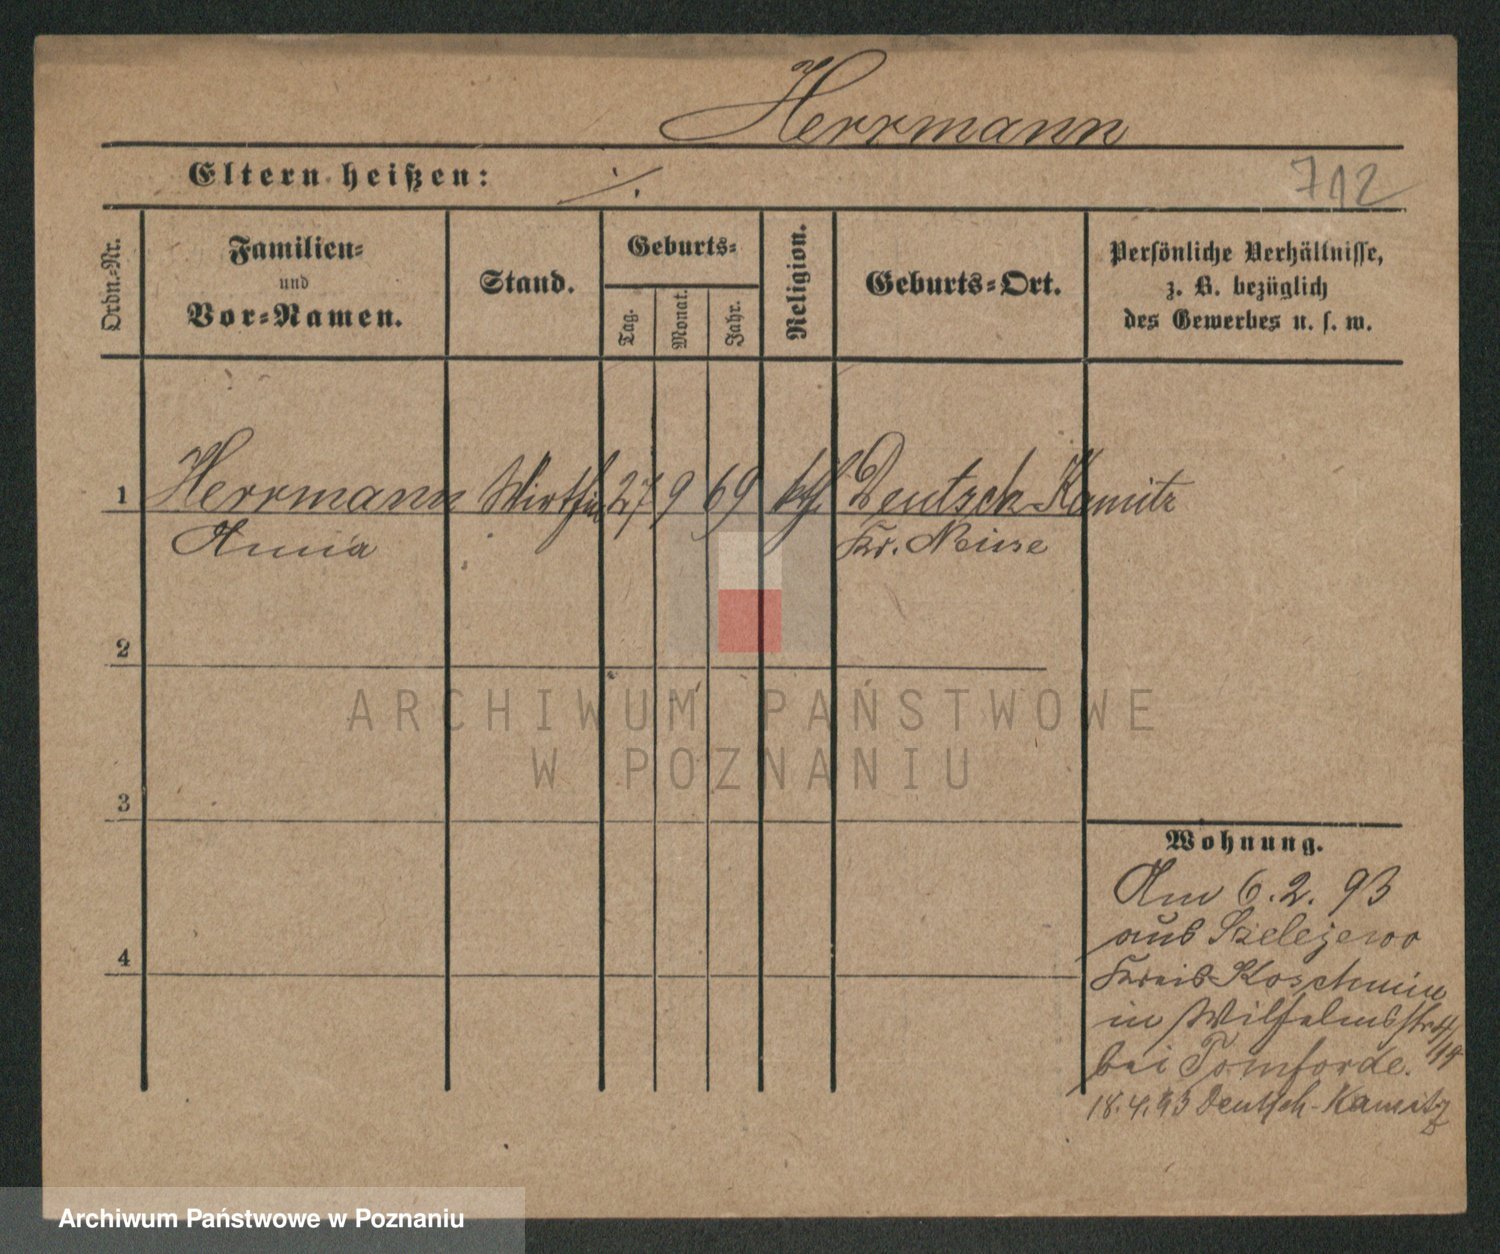 Herrmann
Eltern heißen: ./.
712
Ordn.-Nr.
Familien-
und
Vor-Namen.
Stand.
Geburts-
Tag.
Monat.
Jahr.
Religion.
Geburts-Ort.
Persönliche Verhältnisse,
z. B. bezüglich
des Gewerbes u. s. w.
1 Herrmann Wirthin 27 9 69 kth. Deutsch Kamitz
Anna Kr. Neisse
2
ARCHIWUM PAŃSTWOWE
W POZNANIU
3
Wohnung.
Am 6.2.93
aus Szelejewo
4
Kreis Koschmin
in Wilhelmsstr.
bei Tomforde.
18.4.93 Deutsch-Kamitz
Archiwum Państwowe w Poznaniu